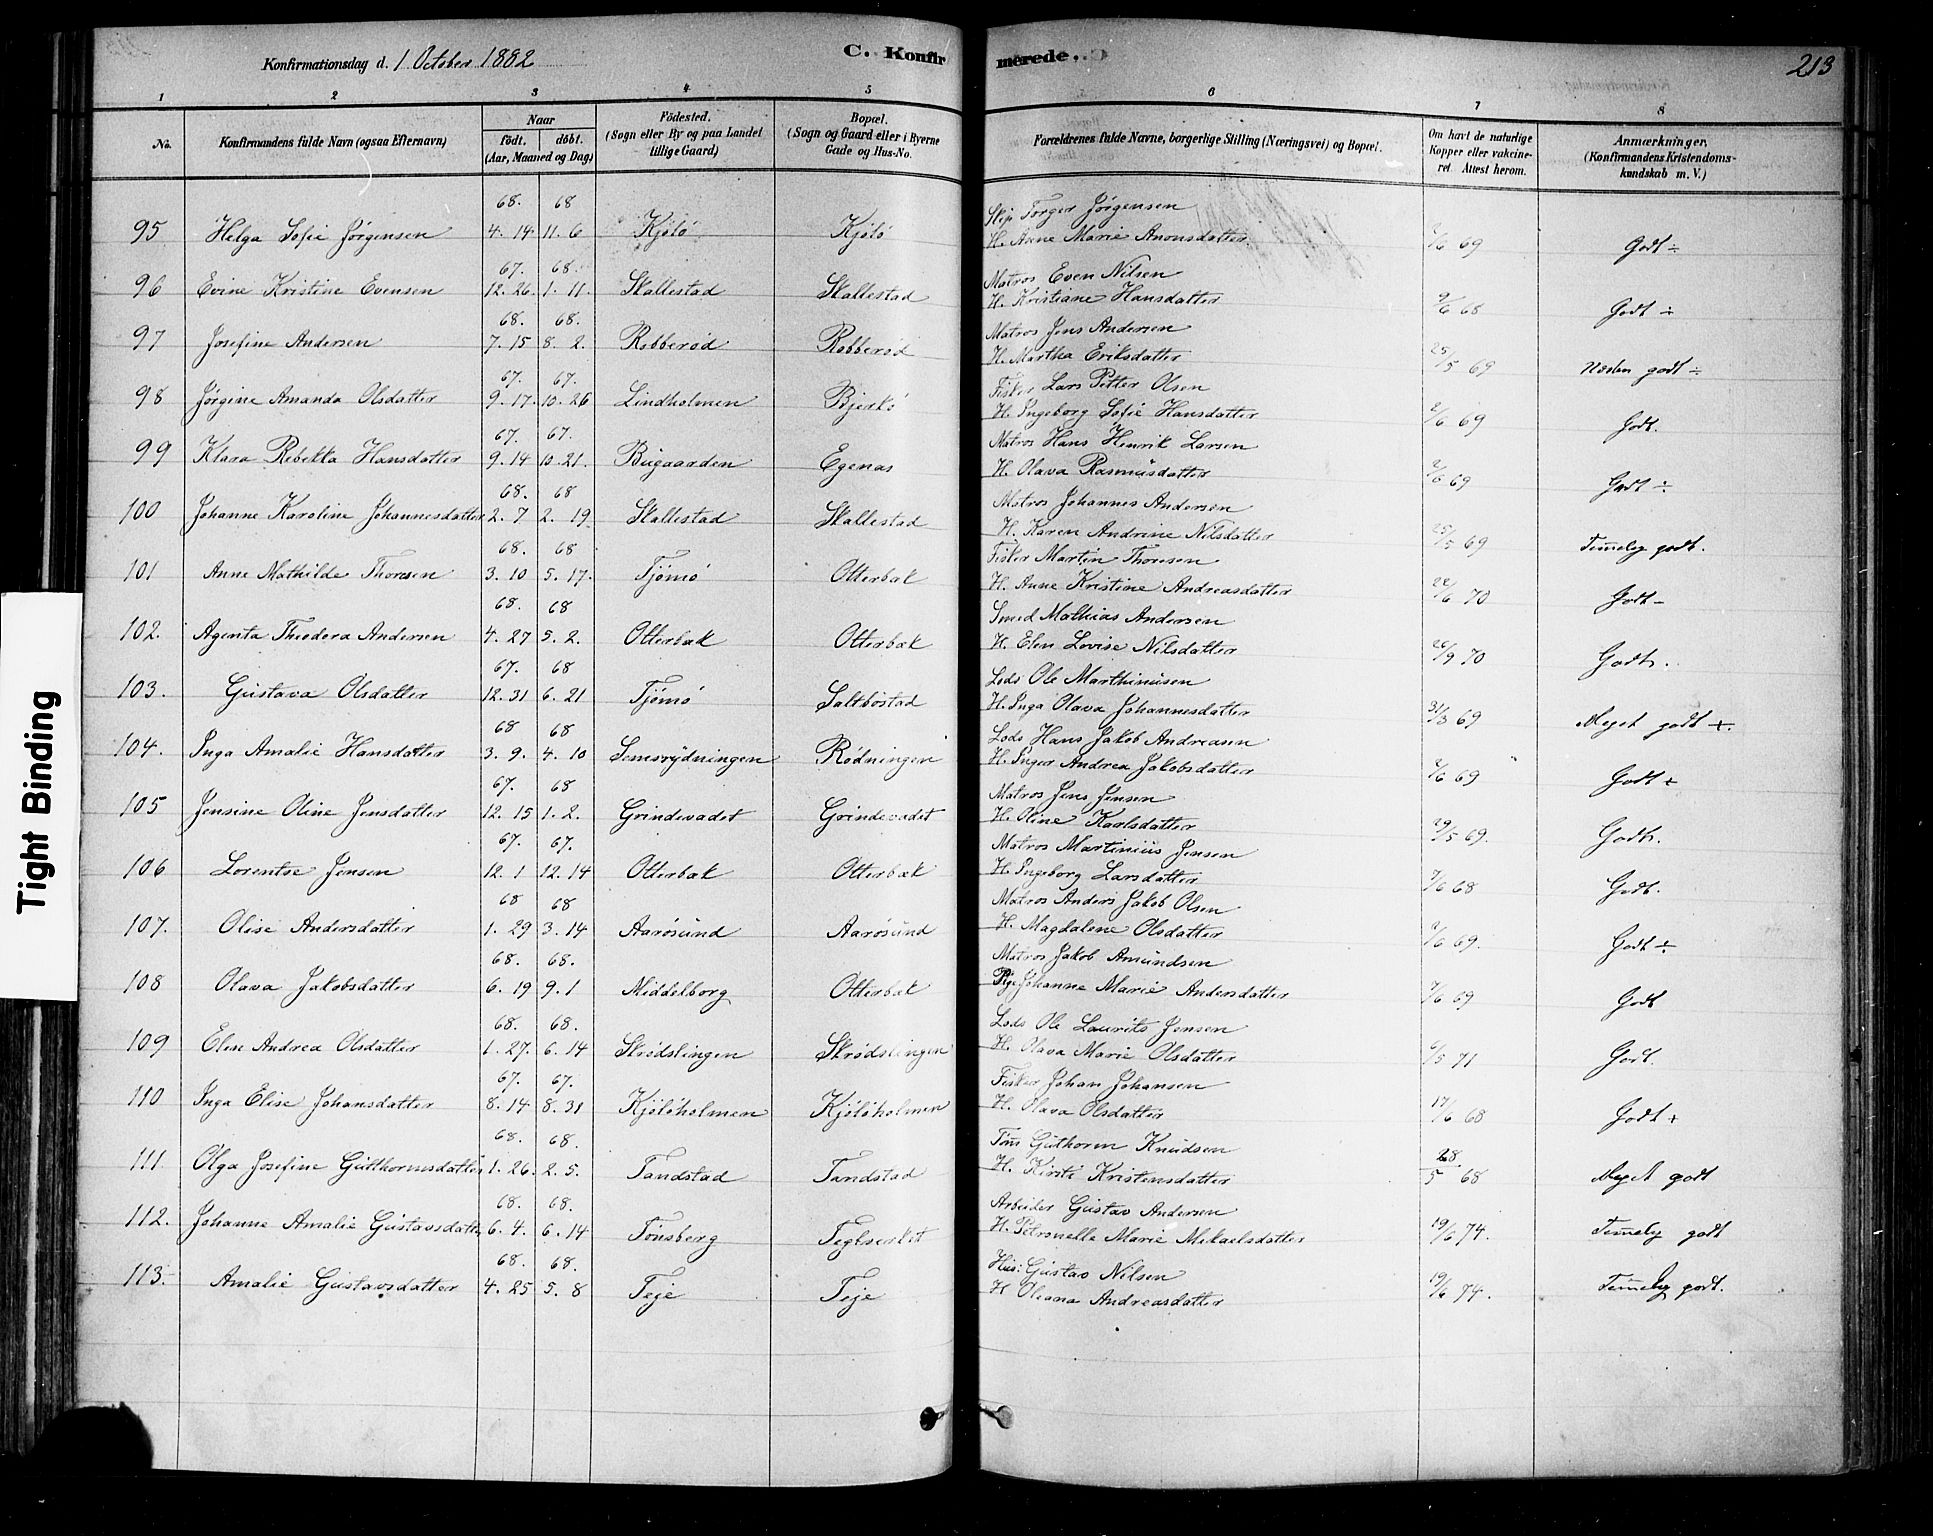 Konfirmationsdag d. 1 October 1882
C. Konfirmerede.
213
1 2 3 4 5 6 7 8
No.
Konfirmandens fulde Navn (ogsaa Efternavn)
Naar
født. døbt.
(Aar, Maaned og Dag)
Fødested.
(Sogn eller By og paa Landet
tillige Gaard)
Bopæl.
(Sogn og Gaard eller i Byerne
Gade og Hus-No.
Forældrenes fulde Navne, borgerlige Stilling (Næringsvei) og Bopæl.
Om havt de naturlige
Kopper eller vakcine-
ret. Attest herom.
Anmærkninger,
(Konfirmandens Kristendoms-
kundskab m. V.)
68. 68 Skip Torger Jörgensen
95 Helga Sofie Jörgensen 4. 14 11. 6 Kjölö Kjölö H. Anne Marie Anonsdatter 2/6 69 Godt ÷
67. 68 Matros Even Nilsen
96 Evine Kristine Evensen 12. 26. 1. 11. Skallestad Skallestad H. Kristiane Hansdatter 9/6 68 Godt ÷
68. 68. Matros Jens Andersen
97 Josefine Andersen 7. 15 8. 2. Robberød Robberød H. Martha Eriksdatter 25/5 69 Næsten godt ÷
67. 67. Fisker Lars Petter Olsen
98 Jørgine Amanda Olsdatter 9. 17. 10. 26 Lindholmen Bjerkö H. Ingeborg Sofie Hansdatter 2/6 69 Godt.
67. 67. Matros Hans Henrik Larsen
99 Klara Rebekka Hansdatter 9. 14 10. 21. Bugaarden Egenæs H. Olava Rasmusdatter 2/6 69 Godt ÷
68. 68 Matros Johannes Andersen
100 Johanne Karoline Johannesdatter 2. 7 2. 19 Skallestad Skallestad H. Karen Andrine Nilsdatter 25/5 69 Temmelig godt.
68. 68 Fisker Martin Thoresen
101 Anne Mathilde Thoresen 3. 10 5. 17. Tjömö Otterbæk H. Anne Kristine Andreasdatter 22/6 70 Godt –
68. 68 Smed Mathias Andersen
102. Agenta Theodora Andersen 4. 27 5. 2. Otterbæk Otterbæk H. Elen Lovise Nilsdatter 26/9 70 Godt.
67. 68 Lods Ole Marthinusen
103. Gustava Olsdatter 12. 31 6. 21 Tjömö Saltbostad H. Inga Olava Johannesdatter 31/3 69 Meget godt +.
68 68 Lods Hans Jakob Andreasen
104. Inga Amalie Hansdatter 3. 9. 4. 10 Semsrydningen Rødningen H. Inger Andrea Jakobsdatter 2/6 69 Godt +
67. 68 Matros Jens Jensen
105 Jensine Oline Jensdatter 12. 15 1. 2. Grindevadet Grindevadet H. Oline Karlsdatter 29/5 69. Godt.
67. 67. Matros Martinius Jensen
106 Lorentse Jensen 12. 1 12. 14 Otterbæk Otterbæk H. Ingeborg Larsdatter 7/6 68 Godt.
68 68 Matros Anders Jakob Olsen
107. Olise Andersdatter 1. 29 3. 14 Aarösund Aarösund H. Magdalene Olsdatter 2/6 69. Godt ÷
68. 68. Matros Jakob Amundsen
108 Olava Jakobsdatter 6. 19 9. 1 Middelborg Otterbæk Pige Johanne Marie Andersdatter 7/6 69 Godt
68. 68. Lods Ole Laurits Jensen
109 Elen Andrea Olsdatter 1. 27. 6. 14 Skrødslingen Skrødslingen H. Olava Marie Olsdatter 6/5 71 Godt.
67. 67. Fisker Johan Johansen
110 Inga Elise Johansdatter 8. 14 8. 31 Kjölöholmen Kjölöholmen H. Olava Olsdatter 17/6 68 Godt +
68. 68. Töm Guthorm Knudsen
111 Olga Josefine Gutthormsdatter 1. 26. 2. 5. Tandstad Tandstad H. Kirsti Kristensdatter 28/5 68 Meget godt
68. 68. Arbeider Gustav Andersen
112. Johanne Amalie Gustavsdatter 6. 4. 6. 14 Tønsberg Teglverket H. Petronelle Marie Mikaelsdatter 19/6 74. Temmelig godt
68. 68. Hus: Gustav Nilsen
113. Amalie Gustavsdatter 4. 25 5. 8 Teje Teje H Oleana Andreasdatter 19/6 74. Temmelig godt.
Tight Binding